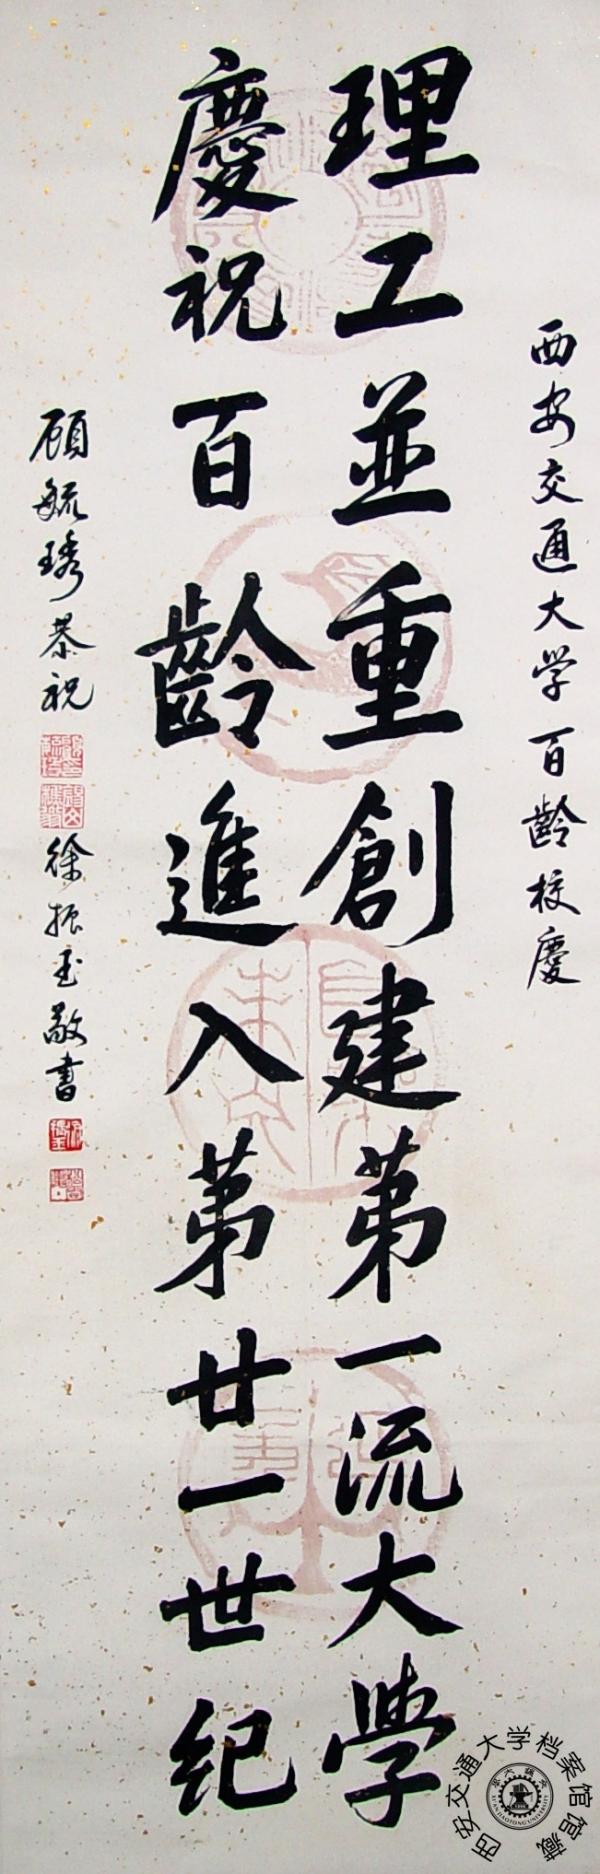 西安交通大学百齡校慶
理工並重創建第一流大學
慶祝百齡進入第廿一世纪
顾毓琇恭祝
徐振玉敬書
西安交通大学档案馆馆藏
XI'AN JIAOTONG UNIVERSITY